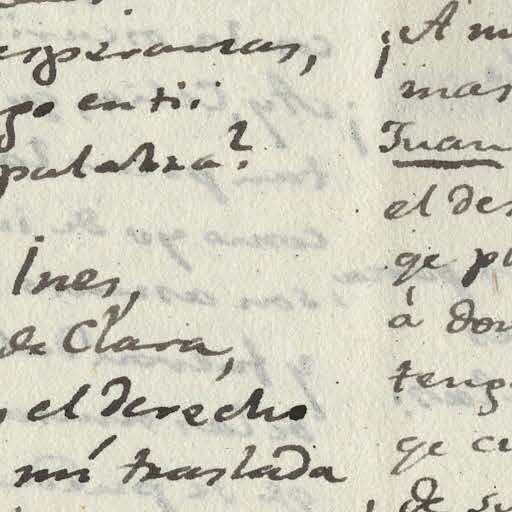 esperanzas,
go en ti:
palabra?
Ines,
de Clara,
el derecho
mi traslada
¡A m
mas
Juan
el des
qe pu
á don
teng
qe
de su